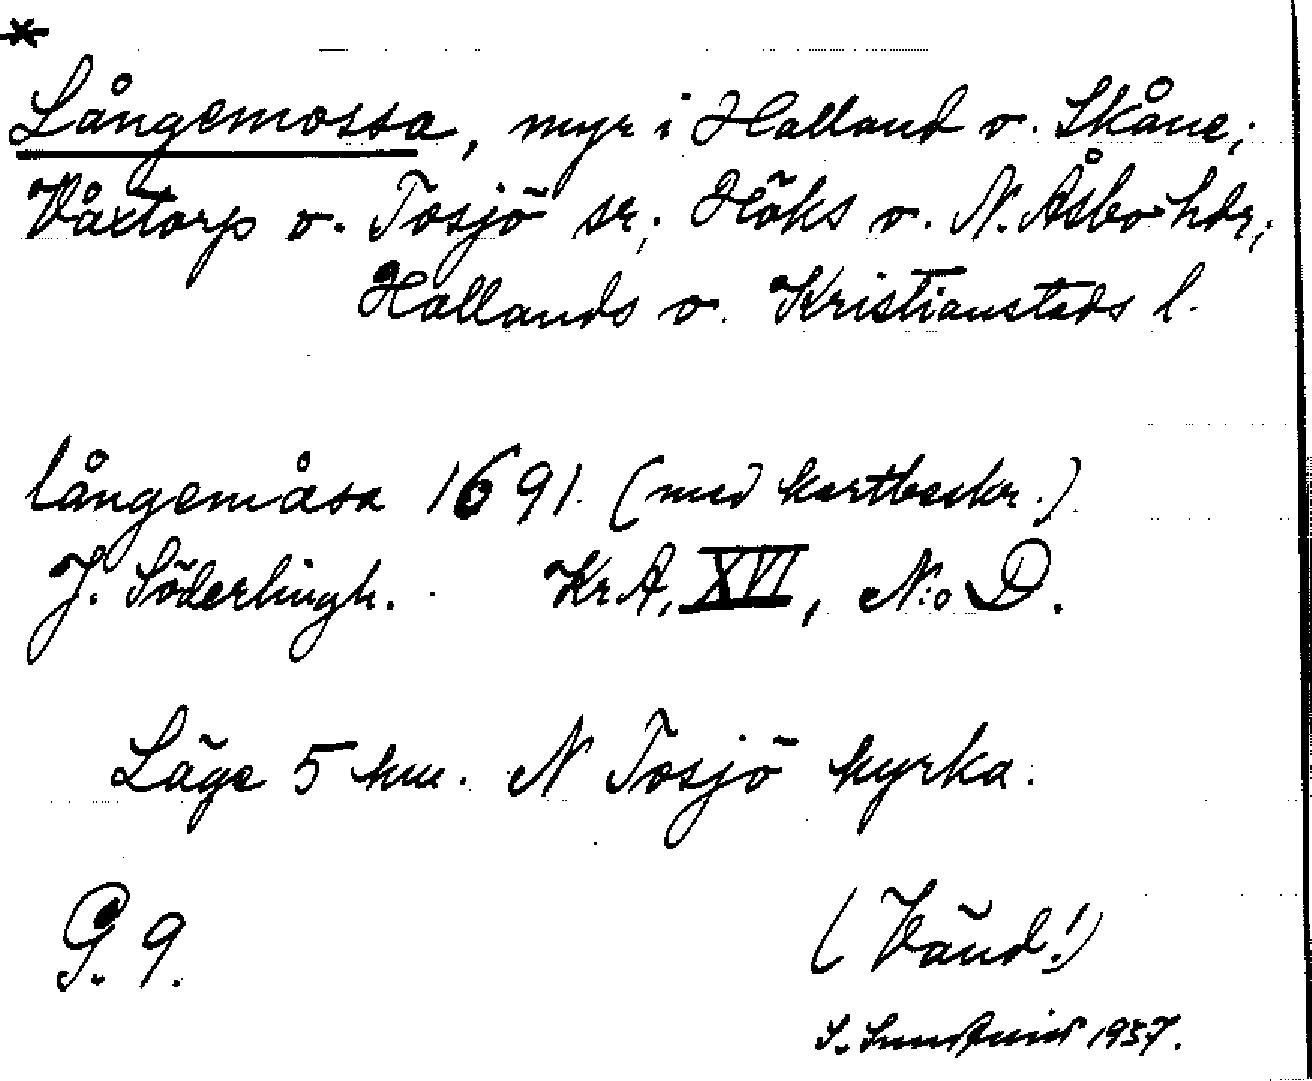 *
Långemossa, myr i Halland o. Skåne;
Våxtorp o. Tosjö sr; Höks o. N. Åsbo hdr;
Hallands o. Kristianstads l.
långemåsa 1691. (med kartbeskr.)
J. Söderlingh. KrA, XVI, N:o D.
Läge 5 km. N Tosjö kyrka.
G. 9.
(Vänd!)
S. 1937.